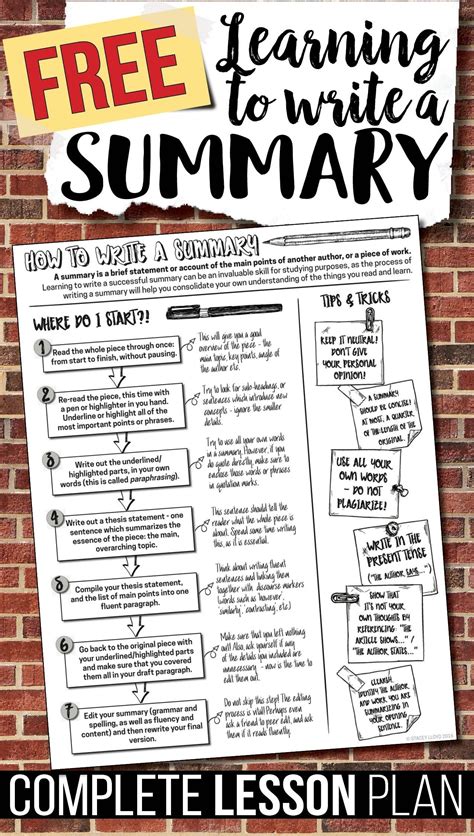 FREE
Learning
to write a
SUMMARY
HOW TO WRITE A SUMMARY
A summary is a brief statement or account of the main points of another author, or a piece of work.
Learning to write a successful summary can be an invaluable skill for studying purposes, as the process of
writing a summary will help you consolidate your own understanding of the things you read and learn.
WHERE DO I START?!
1
Read the whole piece through once:
from start to finish, without pausing.
This will give you a good
overview of the piece - the
main topic, key points, angle of
the author etc.
2
Re-read the piece, this time with
a pen or highlighter in you hand.
Underline or highlight all of the
most important points or phrases.
Try to look for sub-headings, or
sentences which introduce new
concepts - ignore the smaller
details.
3
Write out the underlined/
highlighted parts, in your own
words (this is called paraphrasing).
Try to use all your own words
in a summary. However, if you
do quote directly, make sure to
enclose those words or phrases
in quotation marks.
4
Write out a thesis statement - one
sentence which summarizes the
essence of the piece: the main,
overarching topic.
This sentence should tell the
reader what the whole piece is
about. Spend some time writing
this, as it is essential.
5
Compile your thesis statement,
and the list of main points into one
fluent paragraph.
Think about writing fluent
sentences and linking them
together with discourse markers
(words such as however',
'similarly', 'contrasting', etc.)
6
Go back to the original piece with
your underlined/highlighted parts
and make sure that you covered
them all in your draft paragraph.
Make sure that you left nothing
out! Also, ask yourself if any
of the details you included are
unnecessary - now is the time to
edit them out.
7
Edit your summary (grammar and
spelling, as well as fluency and
content) and then rewrite your final
version.
Do not skip this step! The editing
process is vital! Perhaps even
ask a friend to peer edit, and ask
them what they think of your
summary.
TIPS & TRICKS
KEEP IT NEUTRAL!
DON'T GIVE
YOUR PERSONAL
OPINION!
A SUMMARY
SHOULD BE CONCISE!
AT MOST, A QUARTER
OF THE LENGTH OF THE
ORIGINAL.
USE ALL YOUR
OWN WORDS
- DO NOT
PLAGIARIZE!
WRITE IN THE
PRESENT TENSE
("THE AUTHOR SAYS...")
SHOW THAT
IT'S NOT YOUR
OWN THOUGHTS BY
REFERENCING: "THE
ARTICLE SHOWS..." /
"THE AUTHOR STATES..."
CLEARLY
IDENTIFY THE AUTHOR
AND WORK YOU ARE
SUMMARIZING IN
YOUR OPENING
SENTENCE.
© STACEY LLOYD
COMPLETE LESSON PLAN